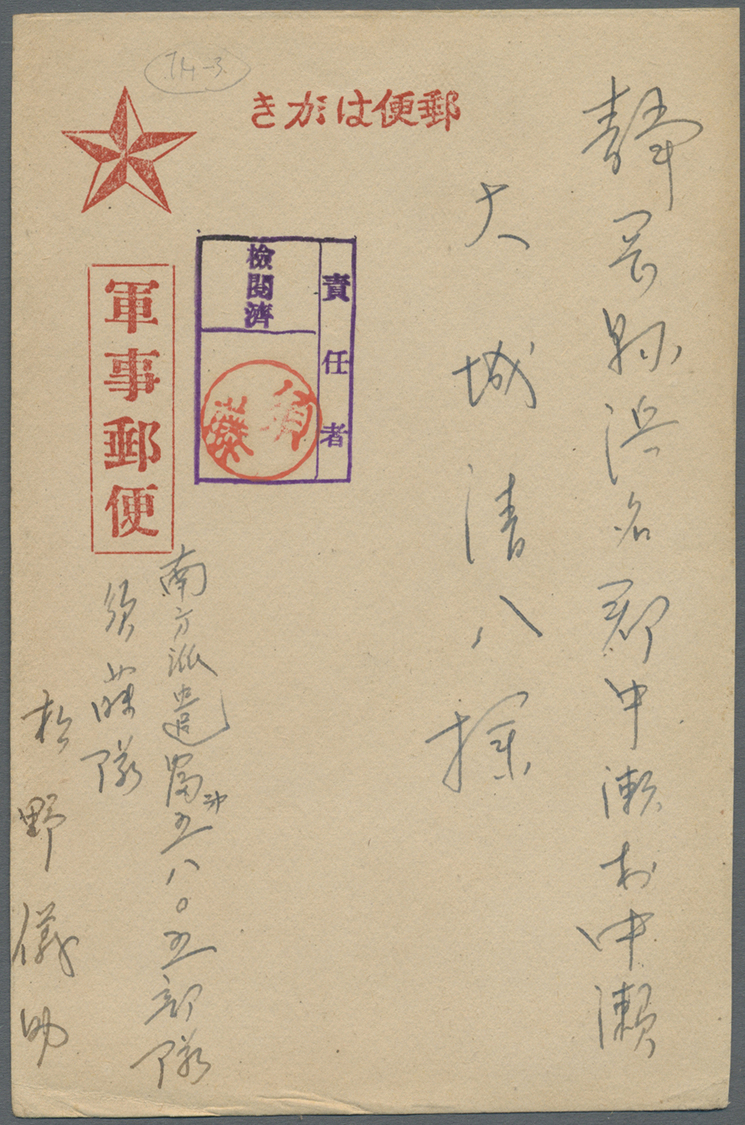 TH-3
きがは便郵
静岡縣浜名郡中瀬村中瀬
大城清八様
責任者
檢閲濟
須藤
軍事郵便
南方派遣富沖五八〇五部隊
須藤隊
松野儀助